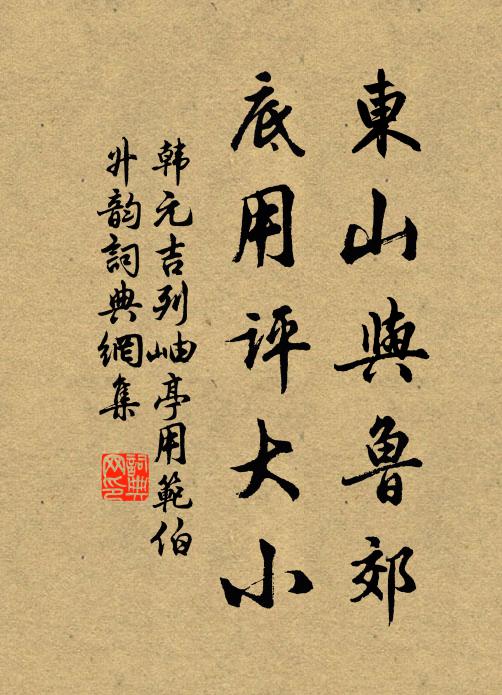 東山與魯郊
底用評大小
韩元吉列岫亭用範伯
升韵詞典網集
詞典网印